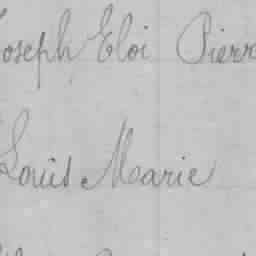 Joseph Eloi Pierre
Louis Marie